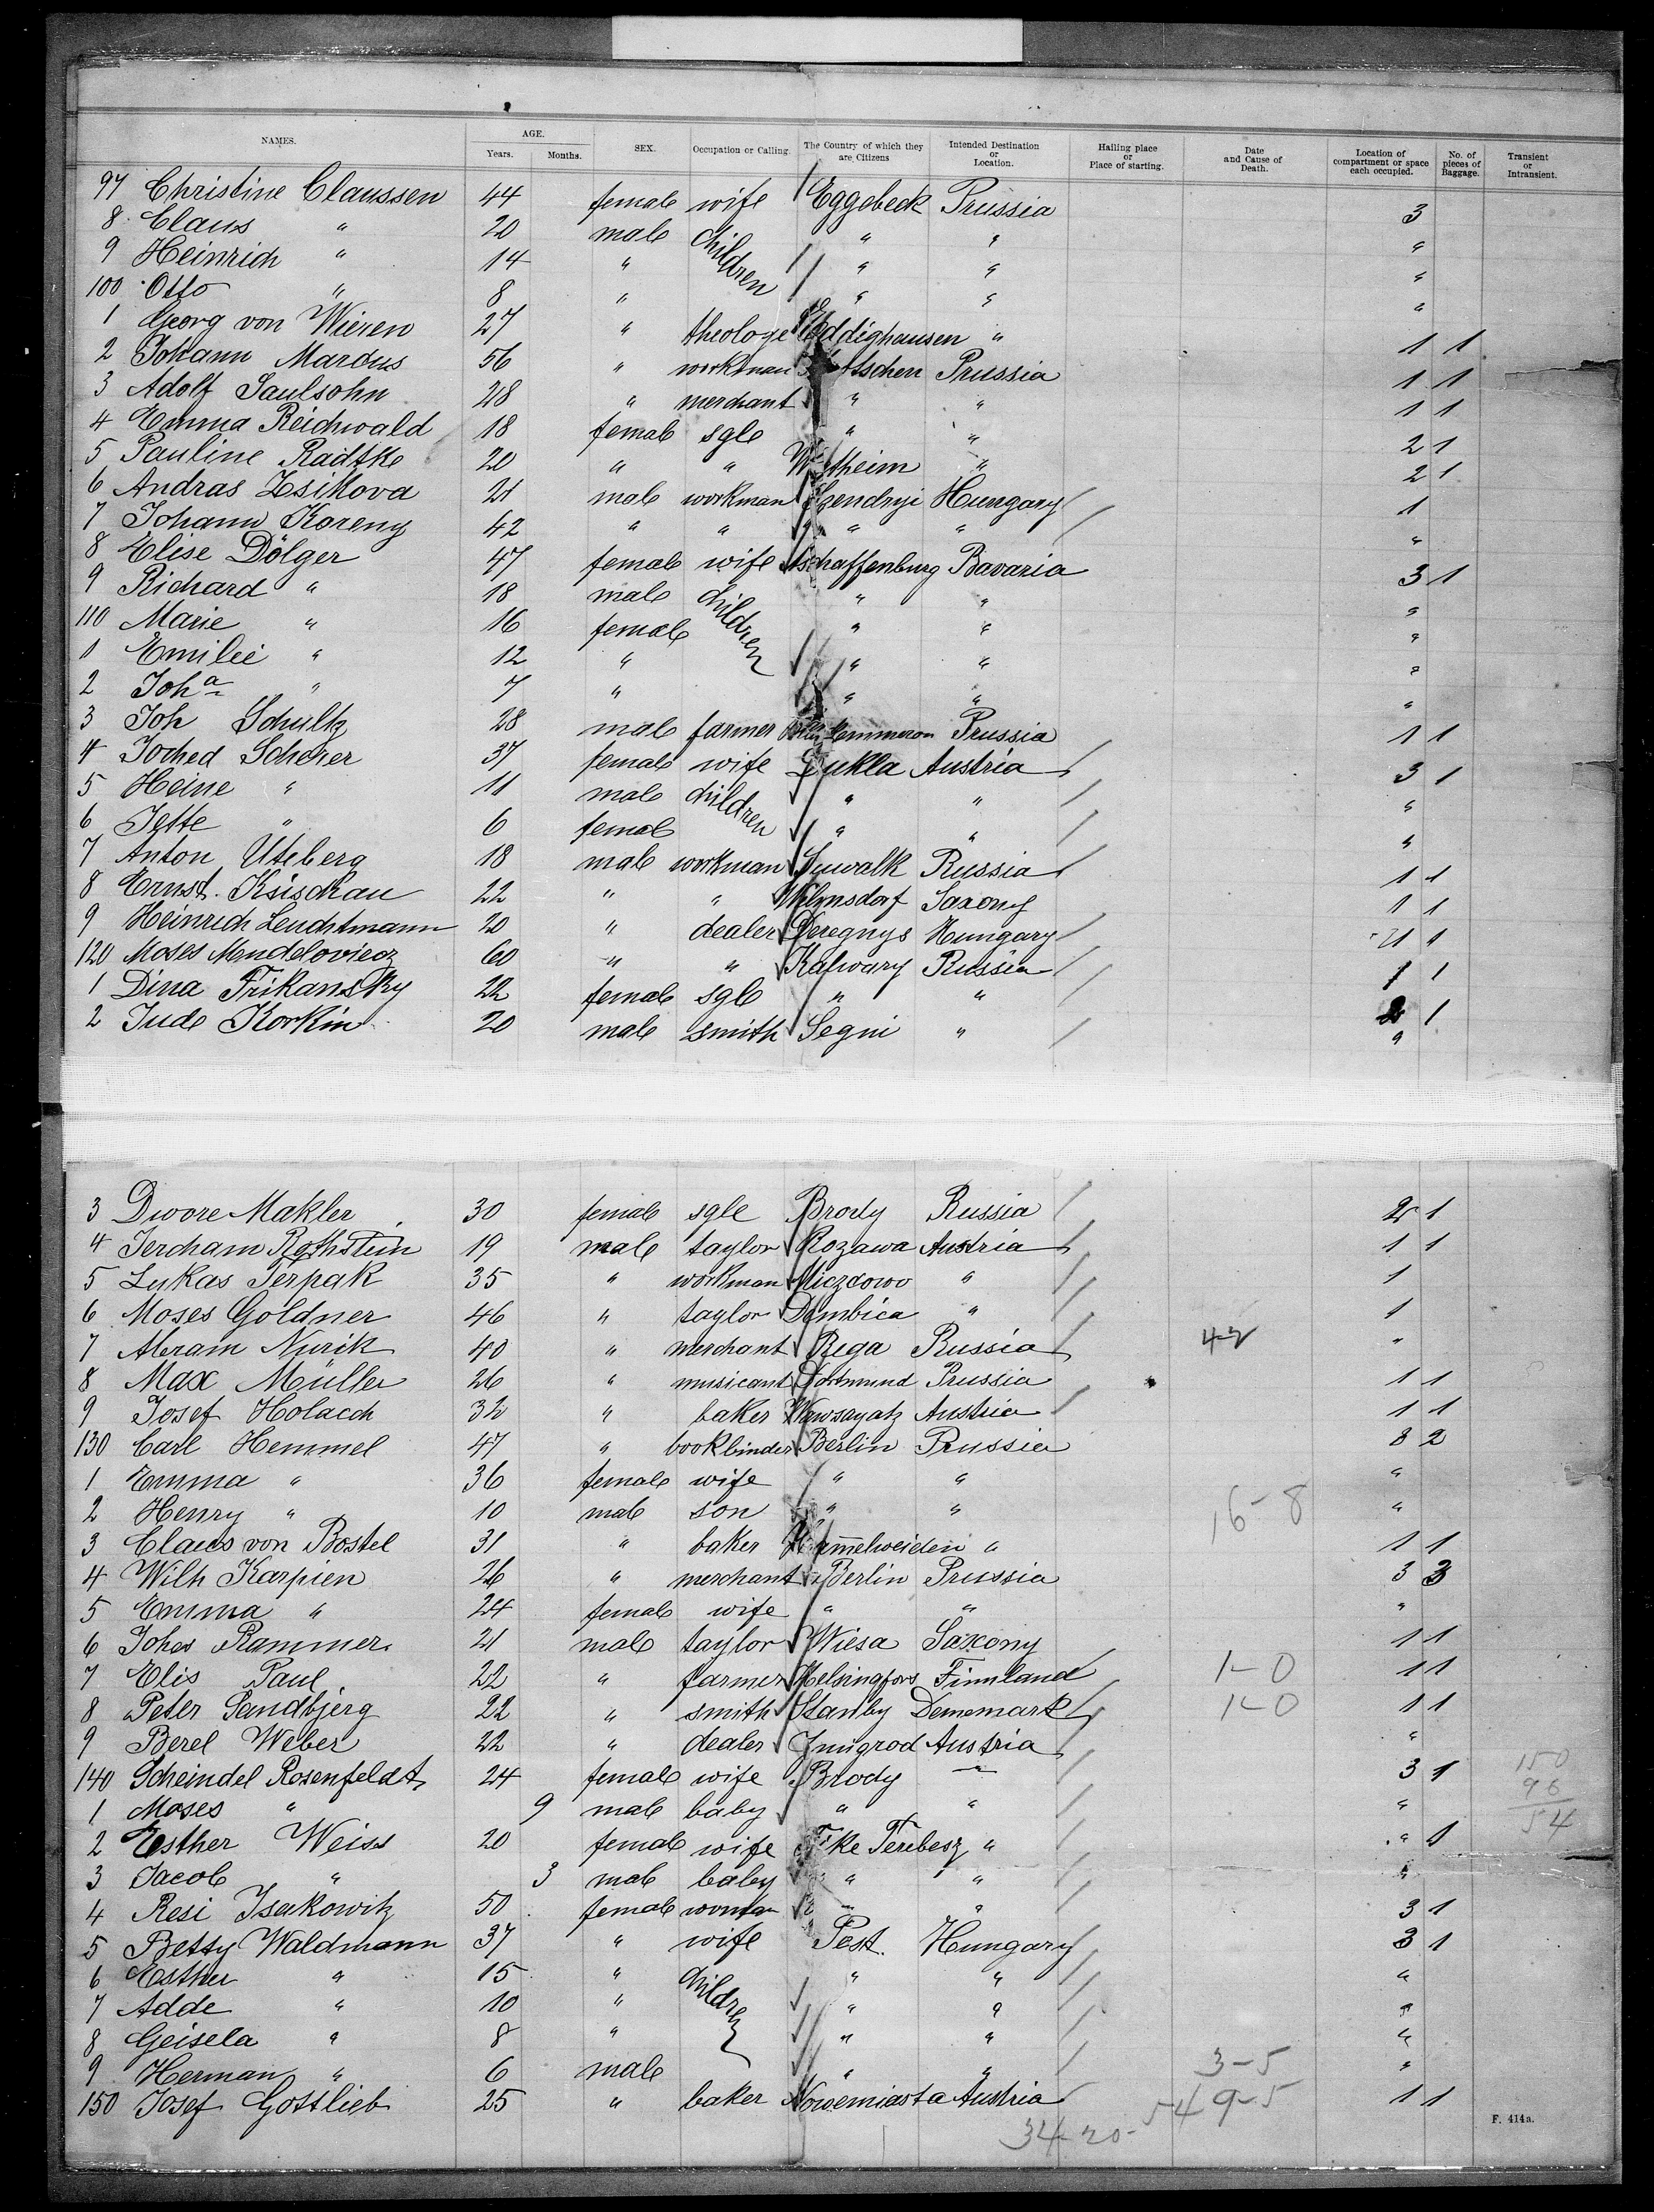 NAMES. AGE. Years. Months. SEX. Occupation or Calling. The Country of which they are Citizens Intended Destination or Location. Hailing place or Place of starting. Date and Cause of Death. Location of compartment or space each occupied. No. of pieces of Baggage. Transient or Intransient.
97 Christine Claussen 44 female wife Eggebeck Prussia 3
8 Claus " 20 male children " " "
9 Heinrich " 14 " " " "
100 Otto " 8 " " " "
1 Georg von Wieren 27 " theologe Eddighausen " 1 1
2 Johann Marcus 56 " workman Prussia 1 1
3 Adolf Saulsohn 28 " merchant " " 1 1
4 Emma Reichwald 18 female sgle " " 2 1
5 Pauline Radtke 20 " " " 2 1
6 Andras Zsikova 21 male workman Szendryi Hungary 1
7 Johann Koreny 42 " " " " "
8 Elise Dölger 47 female wife Aschaffenburg Bavaria 3 1
9 Richard " 18 male children " " "
110 Marie " 16 female " " "
1 Emilie " 12 " " " "
2 Joha " 7 " " " "
3 Joh Schultz 28 male farmer Prussia 1 1
4 Joched Scherer 37 female wife Dukla Austria 3 1
5 Heine " 11 male children " " "
6 Jette " 6 female " " "
7 Anton Uteberg 18 male workman Suwalk Russia 1 1
8 Ernst Ksischau 22 " " Wilmsdorf Saxony 1 1
9 Heinrich Leuchtmann 20 " dealer Deregnys Hungary 1 1
120 Moses Mendeloviecz 60 " " Kalwary Russia 1 1
1 Dina Frikansky 22 female sgle " " 2 1
2 Jude Korkin 20 male smith Segni " "
3 Dwore Makler 30 female sgle Brody Russia 2 1
4 Jercham Rothstein 19 male taylor Rozawa Austria 1 1
5 Lukas Terpak 35 " workman " 1
6 Moses Goldner 46 " taylor Dembica " 1
7 Abram Nurik 40 " merchant Rega Russia "
8 Max Müller 26 " musicant Dortmund Prussia 1 1
9 Josef Holacch 32 " baker Austria 1 1
130 Carl Hemmel 47 " bookbinder Berlin Prussia 8 2
1 Emma " 36 female wife " " "
2 Henry " 10 male son " " 16-8 "
3 Claus von Bostel 31 " baker " 1 1
4 Wilh Karpien 26 " merchant Berlin Prussia 3 3
5 Emma " 24 female wife " " "
6 Johes Rammer 21 male taylor Wiesa Saxony 1 1
7 Elis Paul 22 " farmer Helsingfors Finnland 1-0 1 1
8 Peter Sandbjerg 22 " smith Stanby Dennemark 1-0 1 1
9 Berel Weber 22 " dealer Zmigrod Austria "
140 Scheindel Rosenfeldt 24 female wife Brody " 3 1 150
1 Moses " 9 male baby " " " 96
2 Esther Weiss 20 female wife Terebesz " " 1 54
3 Jacob " 3 male baby " " "
4 Resi Isakowitz 50 female woman " 3 1
5 Betty Waldmann 37 " wife Pest. Hungary 3 1
6 Esther " 15 " children " " "
7 Adde " 10 " " " "
8 Geisela " 8 " " " "
9 Herman " 6 male " " 3-5 "
150 Josef Gottlieb 25 " baker Nowemiasta Austria 54 9-5 1 1
34-20-
F. 414a.